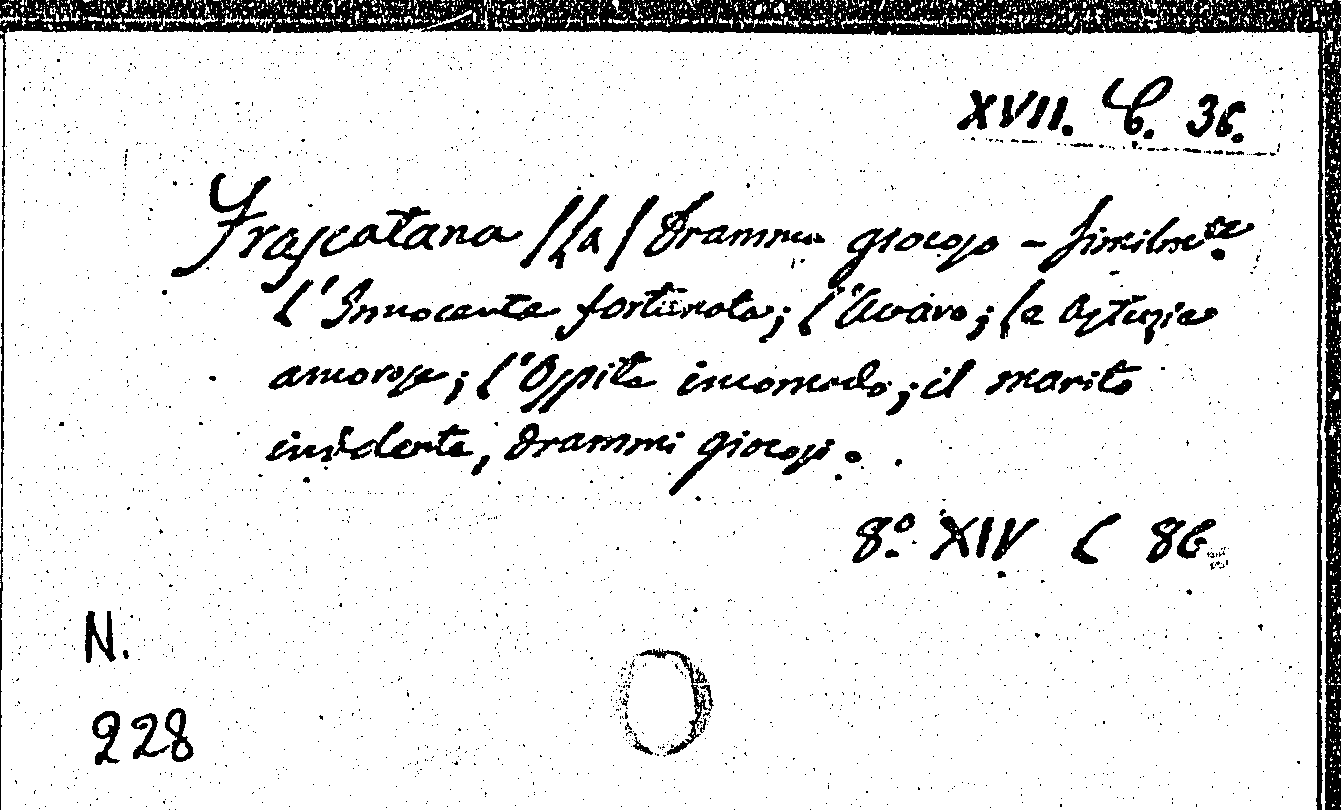 XVII. C. 36.
Frascatana /La/ Dramma giocoso - similm.te
l'Innocente fortunata; l'Avaro; le Astuzie
amorose; l'Ospite incomodo; il marito
indolente, drammi giocosi.
8.o XIV C 86
N.
228